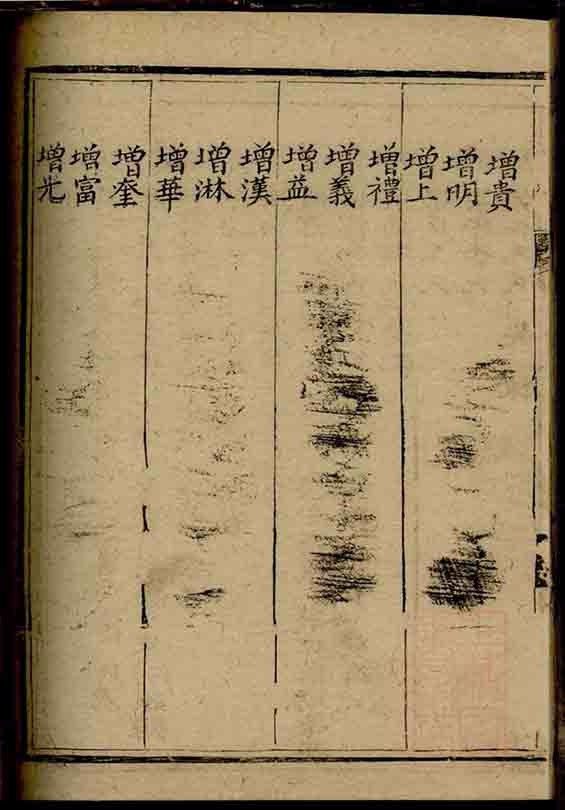 增貴
增明
增上
增禮
增義
增益
增漢
增淋
增華
增奎
增富
增光